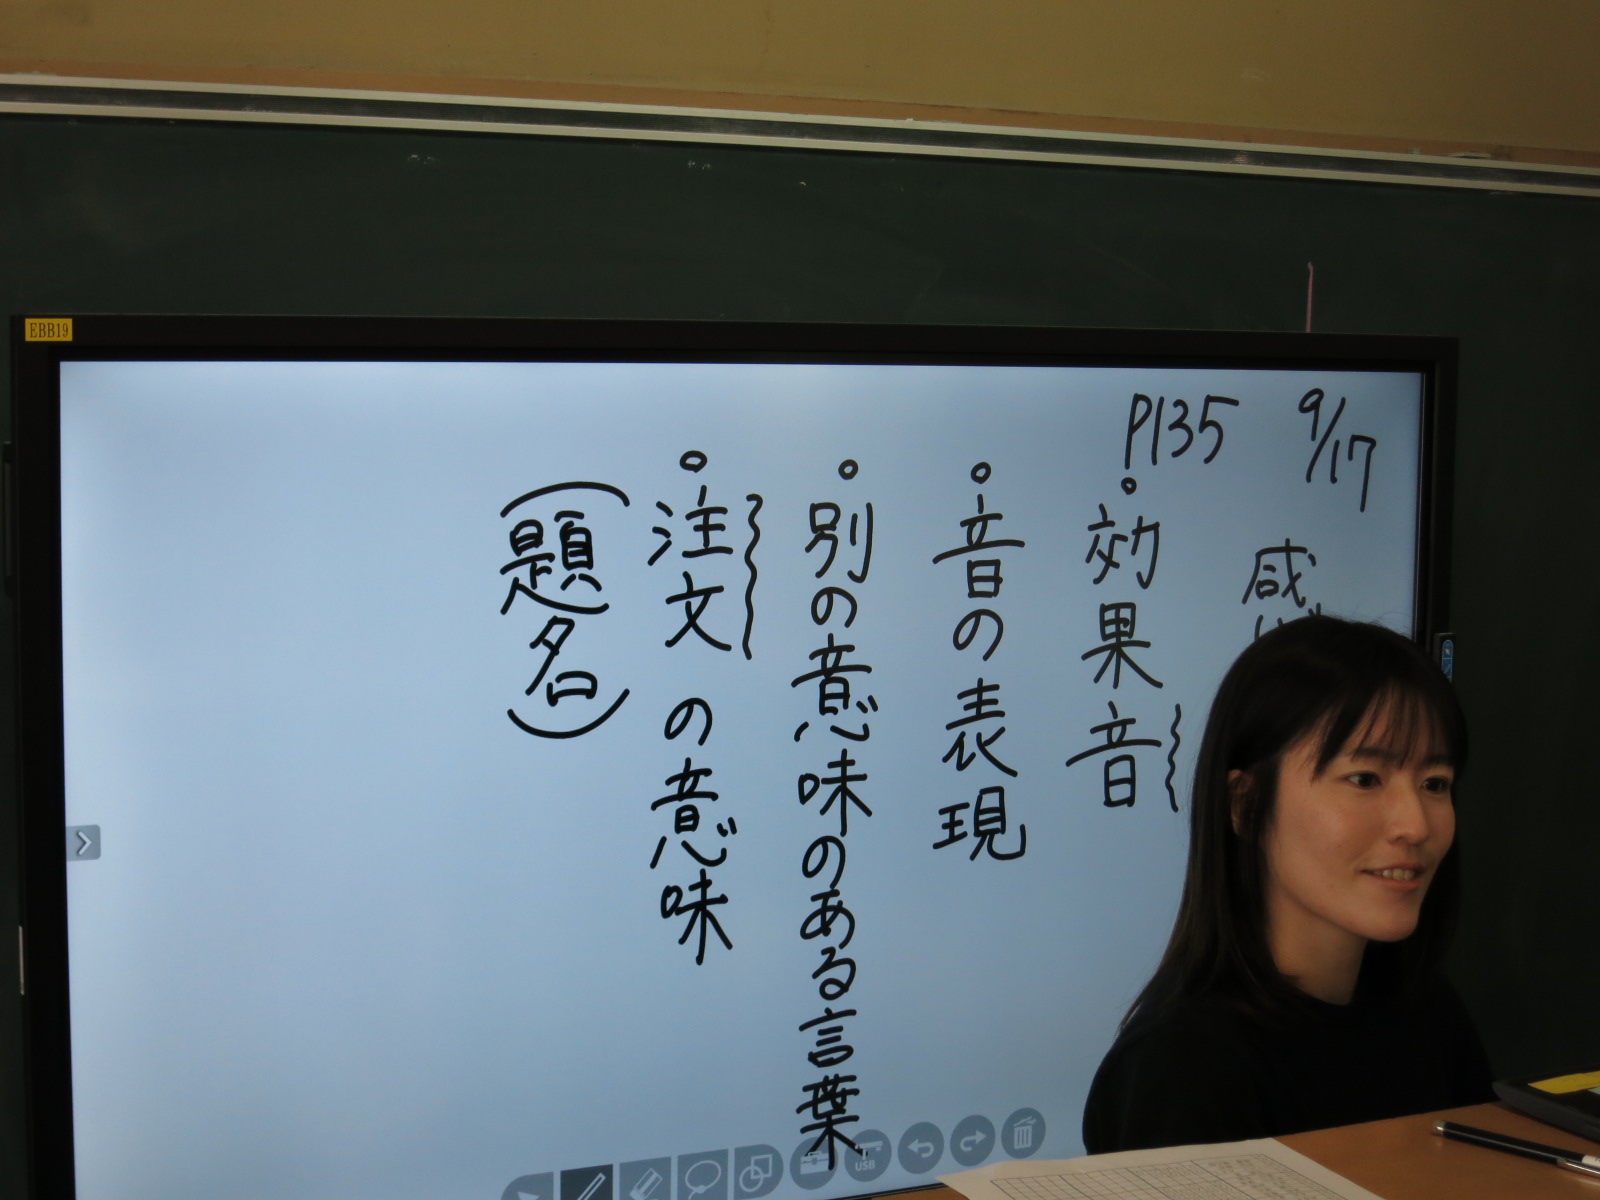 9/17
P135
感
。効果音
。音の表現
。別の意味のある言葉
。注文の意味
(題名)
EBB19
USB